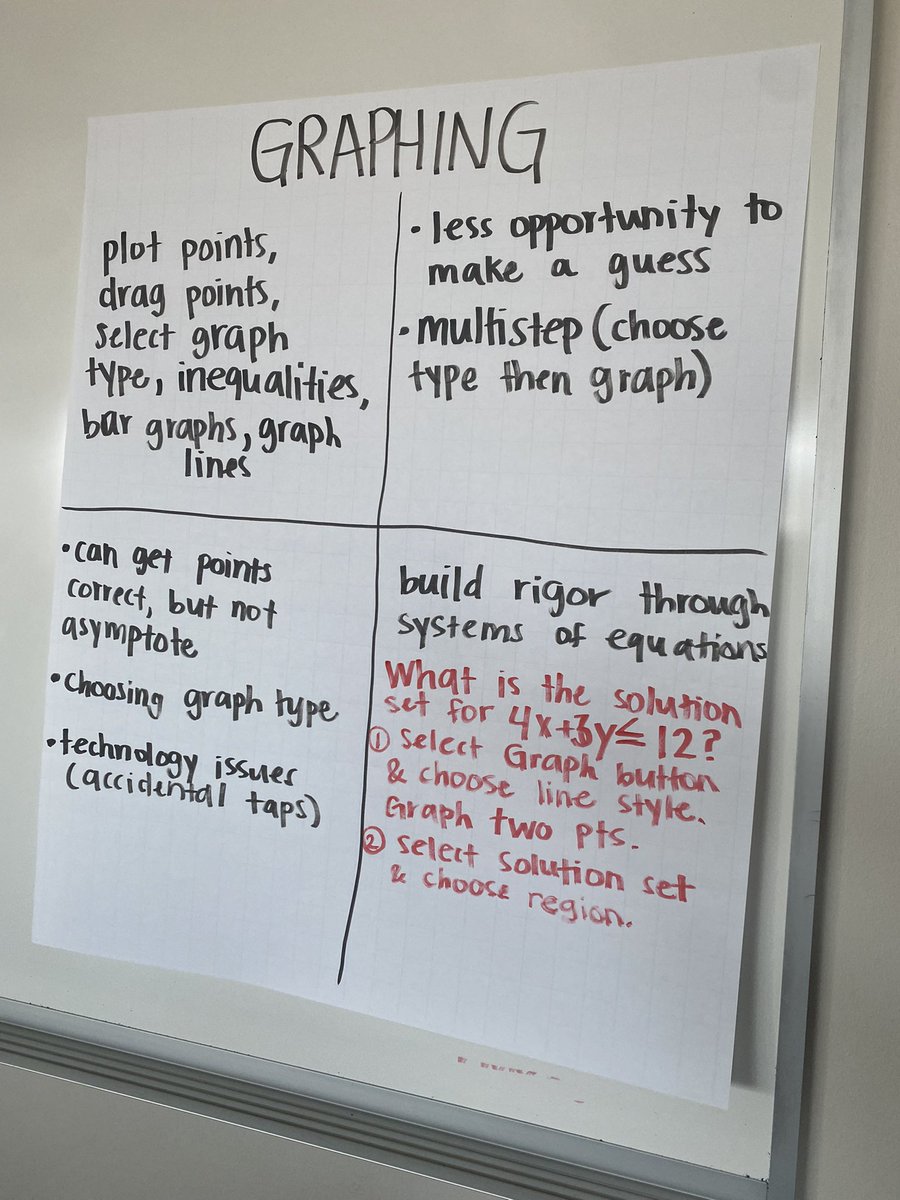 GRAPHING
plot points,
drag points,
select graph
type, inequalities,
bar graphs, graph
lines
• less opportunity to
make a guess
• multistep (choose
type then graph)
• can get points
correct, but not
asymptote
• choosing graph type
• technology issues
(accidental taps)
build rigor through
systems of equations
What is the solution
set for 4x+3y≤12?
① Select Graph button
& choose line style.
Graph two pts.
② Select solution set
& choose region.